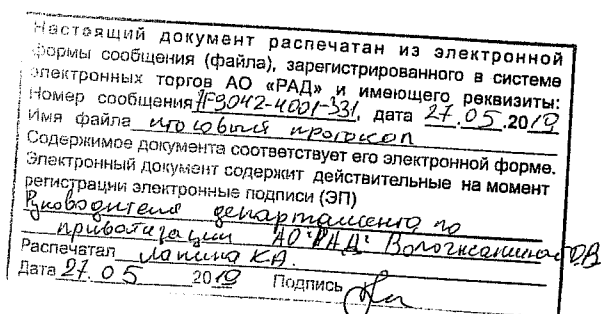 Настоящий документ распечатан из электронной
формы сообщения (файла), зарегистрированного в системе
электронных торгов АО «РАД» и имеющего реквизиты:
Номер сообщения 7F9042-4001-331, дата 27.05.2019
Имя файла итоговый протокол
Содержимое документа соответствует его электронной форме.
Электронный документ содержит действительные на момент
регистрации электронные подписи (ЭП)
Руководителя департамента по
приватизации АО "РАД" О.В.
Распечатал Лапина К.А.
Дата 27.05 2019 Подпись